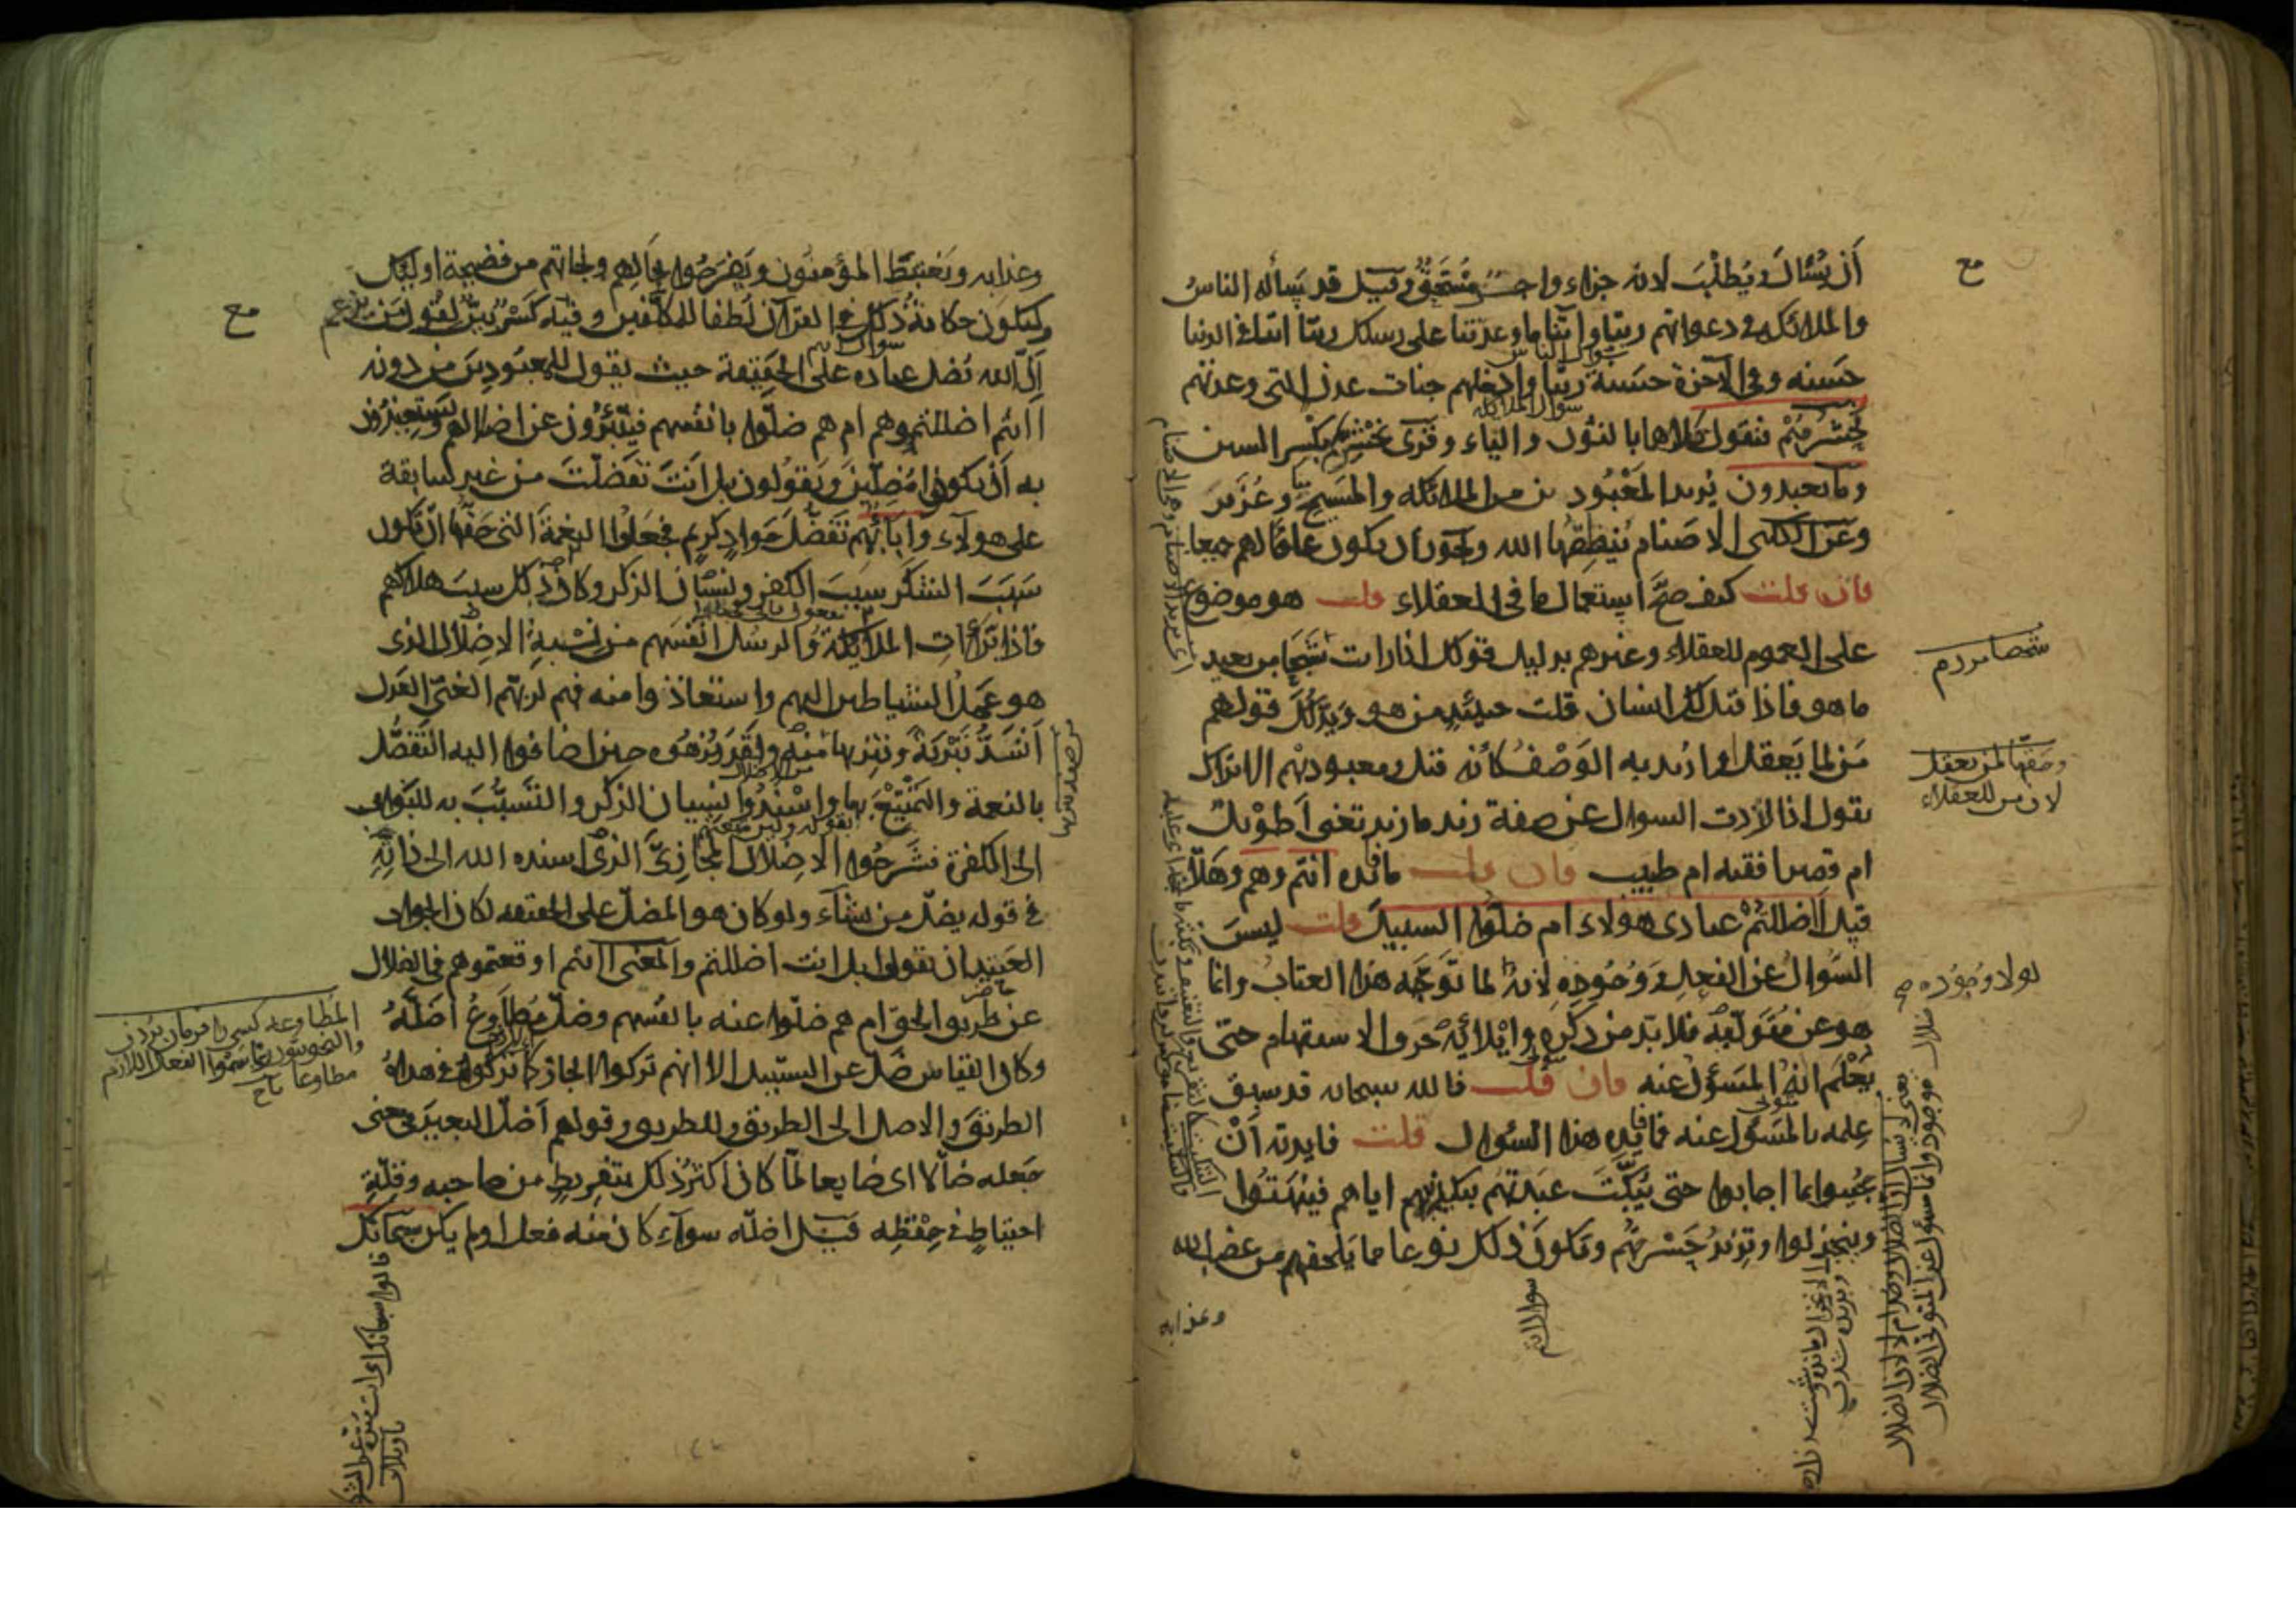 أن يُسْأل ويُطلَب لانه جزاء واجب مُسْتَحَق وقيل قد يسأله الناس
والملائكه في دعواتهم ربنا واتنا ما وعدتنا على رسلك ربنا اتنا في الدنيا
حسنه وفي الآخرة حسنة ربنا وادخلهم جنات عدن التى وعدتهم
يحشرهم فنقول كلاهما بالنون والياء وقرئ نحشرهم بكسر الشين
وما يعبدون يريد المعبودين من الملائكه والمسيح وعُزَير
وعن الكلبى الاصنام يُنطقها الله ويجوز أن يكون عامًّا لهم جميعا
فان قلت كيف صحّ استعمال ما فى العقلاء قلت هو موضوع
على العموم للعقلاء وغيرهم بدليل قولك اذا رايت شبحا من بعيد
ما هو فاذا قيل لك انسان قلت حينئذٍ من هو ويدلّك قولهم
مَن لما يَعقل او اريد به الوَصْف كأنه قيل ومعبوديهم الا تراك
تقول اذا اردت السوال عن صفة زيد ما زيد تعنى أطويل
ام قصير افقيه ام طبيب فان قلت ما فايده انتم وهم وهَلّا
قيل أاضللتمْ عبادى هولاء ام ضلّوا السبيل قلت ليس
السُّوال عن الفعل ووُجُوده لانه لما توَجّه هذا العتابُ وانما
هو عن مُتَوَلّيه فلا بدّ من ذكره وايْلائه حَرف الاستفهام حتى
يُعْلَم انه المسؤل عنه فان قلت فالله سبحانه قد سبق
علمه بالمسؤل عنه فما فايده هذا السُّوال قلت فايدته أن
يجيبوا بما اجابوا حتى يُبَكِّتَ عبَدتهم بتكذيبهم اياهم فيُبهَتُوا
وينخذلوا وتزيد حَسْرتهُم ويكون ذلك نوعا مما يلحقهم من غضب الله
وعذابه
مع
شخصا مردم
وصفها لمن يعقل
لان من للعقلاء
لولا وجوده
سوال الناس
سوال الملائكه
وعذابه ويَغتبطَ المؤمنون ويَفرَحُوا بحالهم ونجاتهم من فضيحة اوليك
وليكون حكاية ذلك في القرآن لطفا للمكلَّفين وفيه كَسْرٌ بيّن لقول من يزعم
إن الله يُضل عباده على الحقيقة حيث يقول للمعبُودين من دونه
أانتم اضللتموهم ام هم ضلّوا بانفسهم فيتبرّؤن عن اضلالهم ويستعيذون
به أن يكونوا مُضلّين ويقولون بل انتَ تفضّلتَ من غير سابقة
على هولآء وابائهم تفضّلَ جَوادٍ كريم فجعلوا النعمة التى حقّها ان تكون
سَبَبَ الشكر سببَ الكفر ونسْيان الذكر وكان ذلك سبب هلاكهم
فاذا تبرَّأتِ الملائكة والرسل انفسهم من نسْبة الاضلال الذى
هو عَمل الشياطين اليهم واستعاذوا منه فهم لربّهم الغنى العَدل
أشدّ تَبْريةً وتنزيها منه ولقد نزهوه حين اضافوا اليه التفضّل
بالنعمة والتمتيعَ بها واسْنَدُوا نسيان الذكر والتسبُّبَ به للبَوار
الى الكفرة فشرَحُوا الاضلال المجازىّ الذى اسنده الله الى ذاته
في قوله يضلّ من يشآء ولو كان هو المضلّ على الحقيقه لكان الجواب
العَتيد ان يقولوا بل انت اضللتم والمعنى أانتم اوقعتموهم في الضلال
عن طريق الحق ام هم ضلّوا عنه بانفسهم وضلّ مُطاوِعُ أضلّهُ
وكان القياس ضلّ عن السّبيل الا انهم تركوا الجارّ كما تركوه في هداهُ
الطريق والاصل الى الطريق وللطريق وقولهم أضلّ البعيرَ في معنى
جَعله ضآلا اى ضايعا لمّا كان اكثرُ ذلك بتفريطٍ من صاحبه وقلّة
احتياطٍ في حِفْظِه قيل اضلّه سوآء كان منه فعل او لم يكن سبحانك
مع
المطاوعه كسى را فرمان بردن
والنحويون يسمّوا الفعل اللازم
مطاوعا تاج